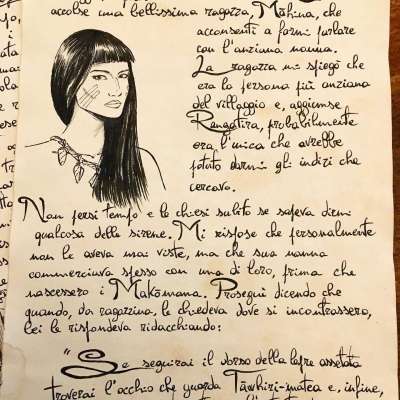 accolse una bellissima ragazza, Māhina, che
acconsentì a farmi parlare
con l'anziana nonna.
La ragazza mi spiegò che
era la persona più anziana
del villaggio e, aggiunse
Rangatira, probabilmente
era l'unica che avrebbe
potuto darmi gli indizi che
cercavo.
Non persi tempo e le chiesi subito se sapeva dirmi
qualcosa delle sirene. Mi rispose che personalmente
non le aveva mai viste, ma che sua nonna
commerciava spesso con una di loro, prima che
nascessero i Makōmana. Proseguì dicendo che
quando, da ragazzina, le chiedeva dove si incontrassero,
lei le rispondeva ridacchiando:
"Se seguirai il dorso della lepre assetata
troverai l'occhio che guarda Tāwhiri-mātea e, infine,